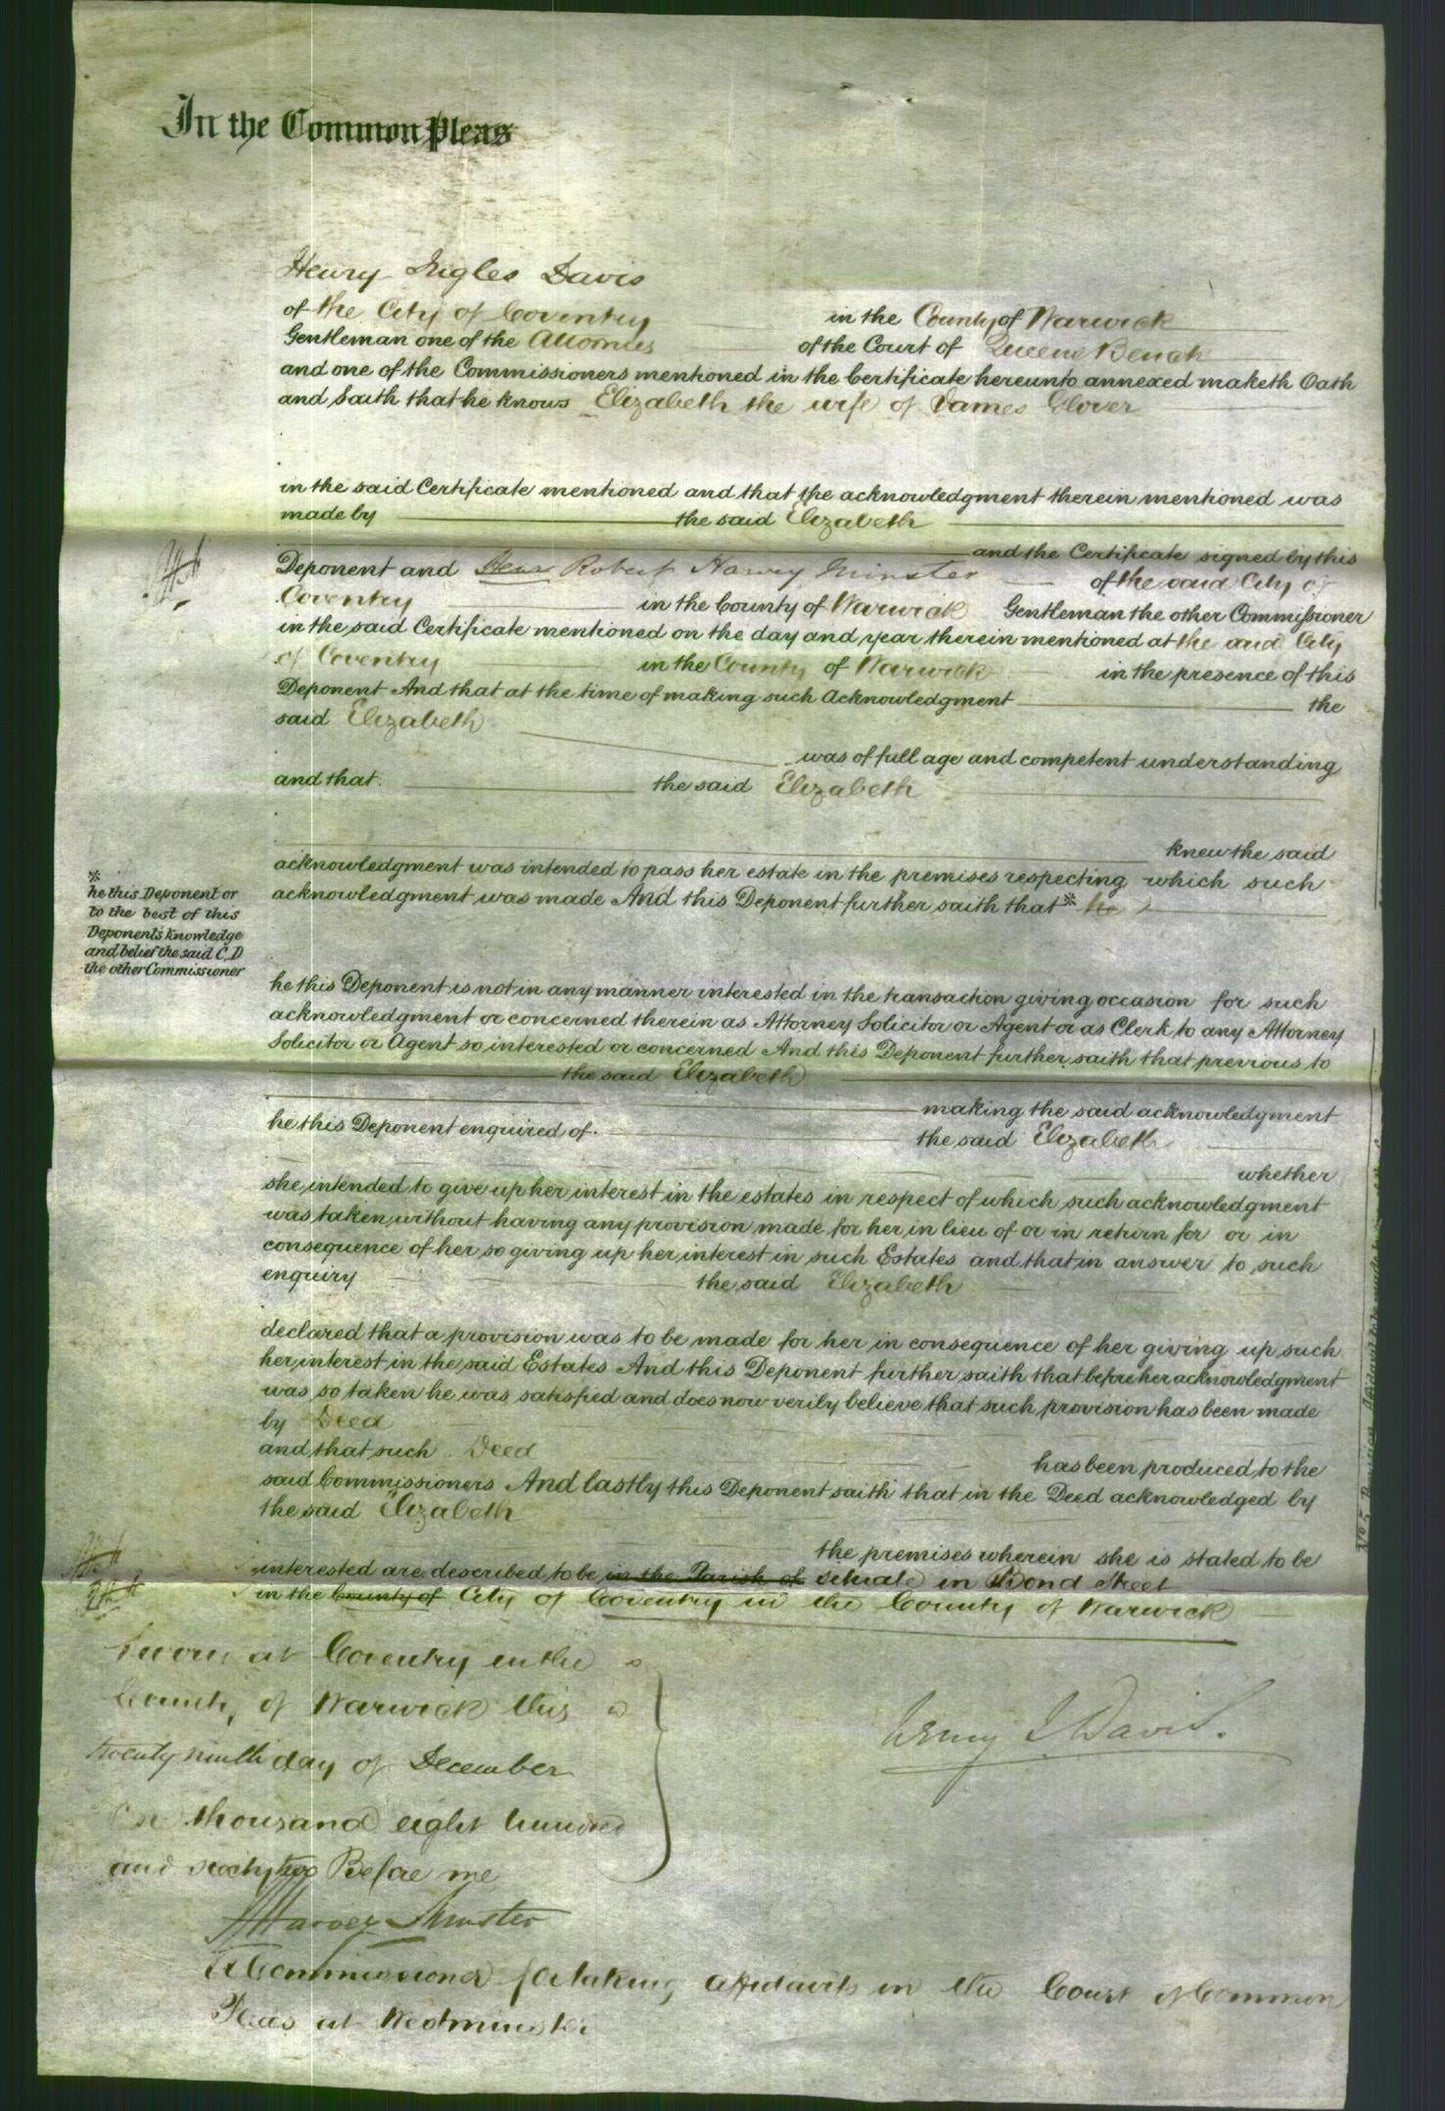 In the Common Pleas
Henry Ingles Davis
of the City of Coventry in the County of Warwick
Gentleman one of the Attornies of the Court of Queens Bench
and one of the Commissioners mentioned in the Certificate hereunto annexed maketh Oath
and Saith that he knows Elizabeth the wife of James Glover
in the said Certificate mentioned and that the acknowledgment therein mentioned was
made by the said Elizabeth
and the Certificate signed by this
Deponent and Robert Harvey Minster of the said City of
Coventry in the County of Warwick Gentleman the other Commissioner
in the said Certificate mentioned on the day and year therein mentioned at the said City
of Coventry in the County of Warwick in the presence of this
Deponent And that at the time of making such Acknowledgment the
said Elizabeth
was of full age and competent understanding
and that the said Elizabeth
knew the said
acknowledgment was intended to pass her estate in the premises respecting which such
acknowledgment was made And this Deponent further saith that * he
*
he this Deponent or
to the best of this
Deponents knowledge
and belief the said C.D
the other Commissioner
he this Deponent is not in any manner interested in the transaction giving occasion for such
acknowledgment or concerned therein as Attorney Solicitor or Agent or as Clerk to any Attorney
Solicitor or Agent so interested or concerned And this Deponent further saith that previous to
the said Elizabeth
making the said acknowledgment
he this Deponent enquired of the said Elizabeth
whether
she intended to give up her interest in the estates in respect of which such acknowledgment
was taken without having any provision made for her in lieu of or in return for or in
consequence of her so giving up her interest in such Estates and that in answer to such
enquiry the said Elizabeth
declared that a provision was to be made for her in consequence of her giving up such
her interest in the said Estates And this Deponent further saith that before her acknowledgment
was so taken he was satisfied and does now verily believe that such provision has been made
by Deed
and that such Deed has been produced to the
said Commissioners And lastly this Deponent saith that in the Deed acknowledged by
the said Elizabeth
the premises wherein she is stated to be
interested are described to be in the Parish of situate in Bond Street
in the County of City of Coventry in the County of Warwick
Sworn at Coventry in the
County of Warwick this
twenty ninth day of December
One thousand eight hundred
and sixty two Before me
Harvey Minster
A Commissioner for taking Affidavits in the Court of Common
Pleas at Westminster
Henry I Davis.